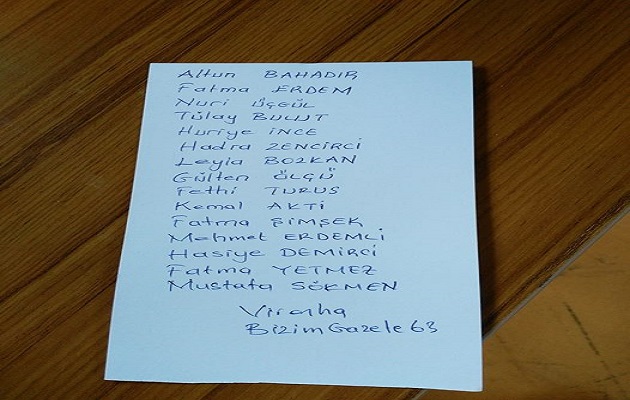 Altun BAHADIR
Fatma ERDEM
Nuri ÜÇGÜL
Tülay BULUT
Huriye İNCE
Hadra ZENCİRCİ
Leyla BOZKAN
Gülten ÖLÇÜ
Fethi TURUS
Kemal AKTİ
Fatma ŞİMŞEK
Mehmet ERDEMLİ
Hasiye DEMİRCİ
Fatma YETMEZ
Mustafa SÖKMEN
BizimGazele 63